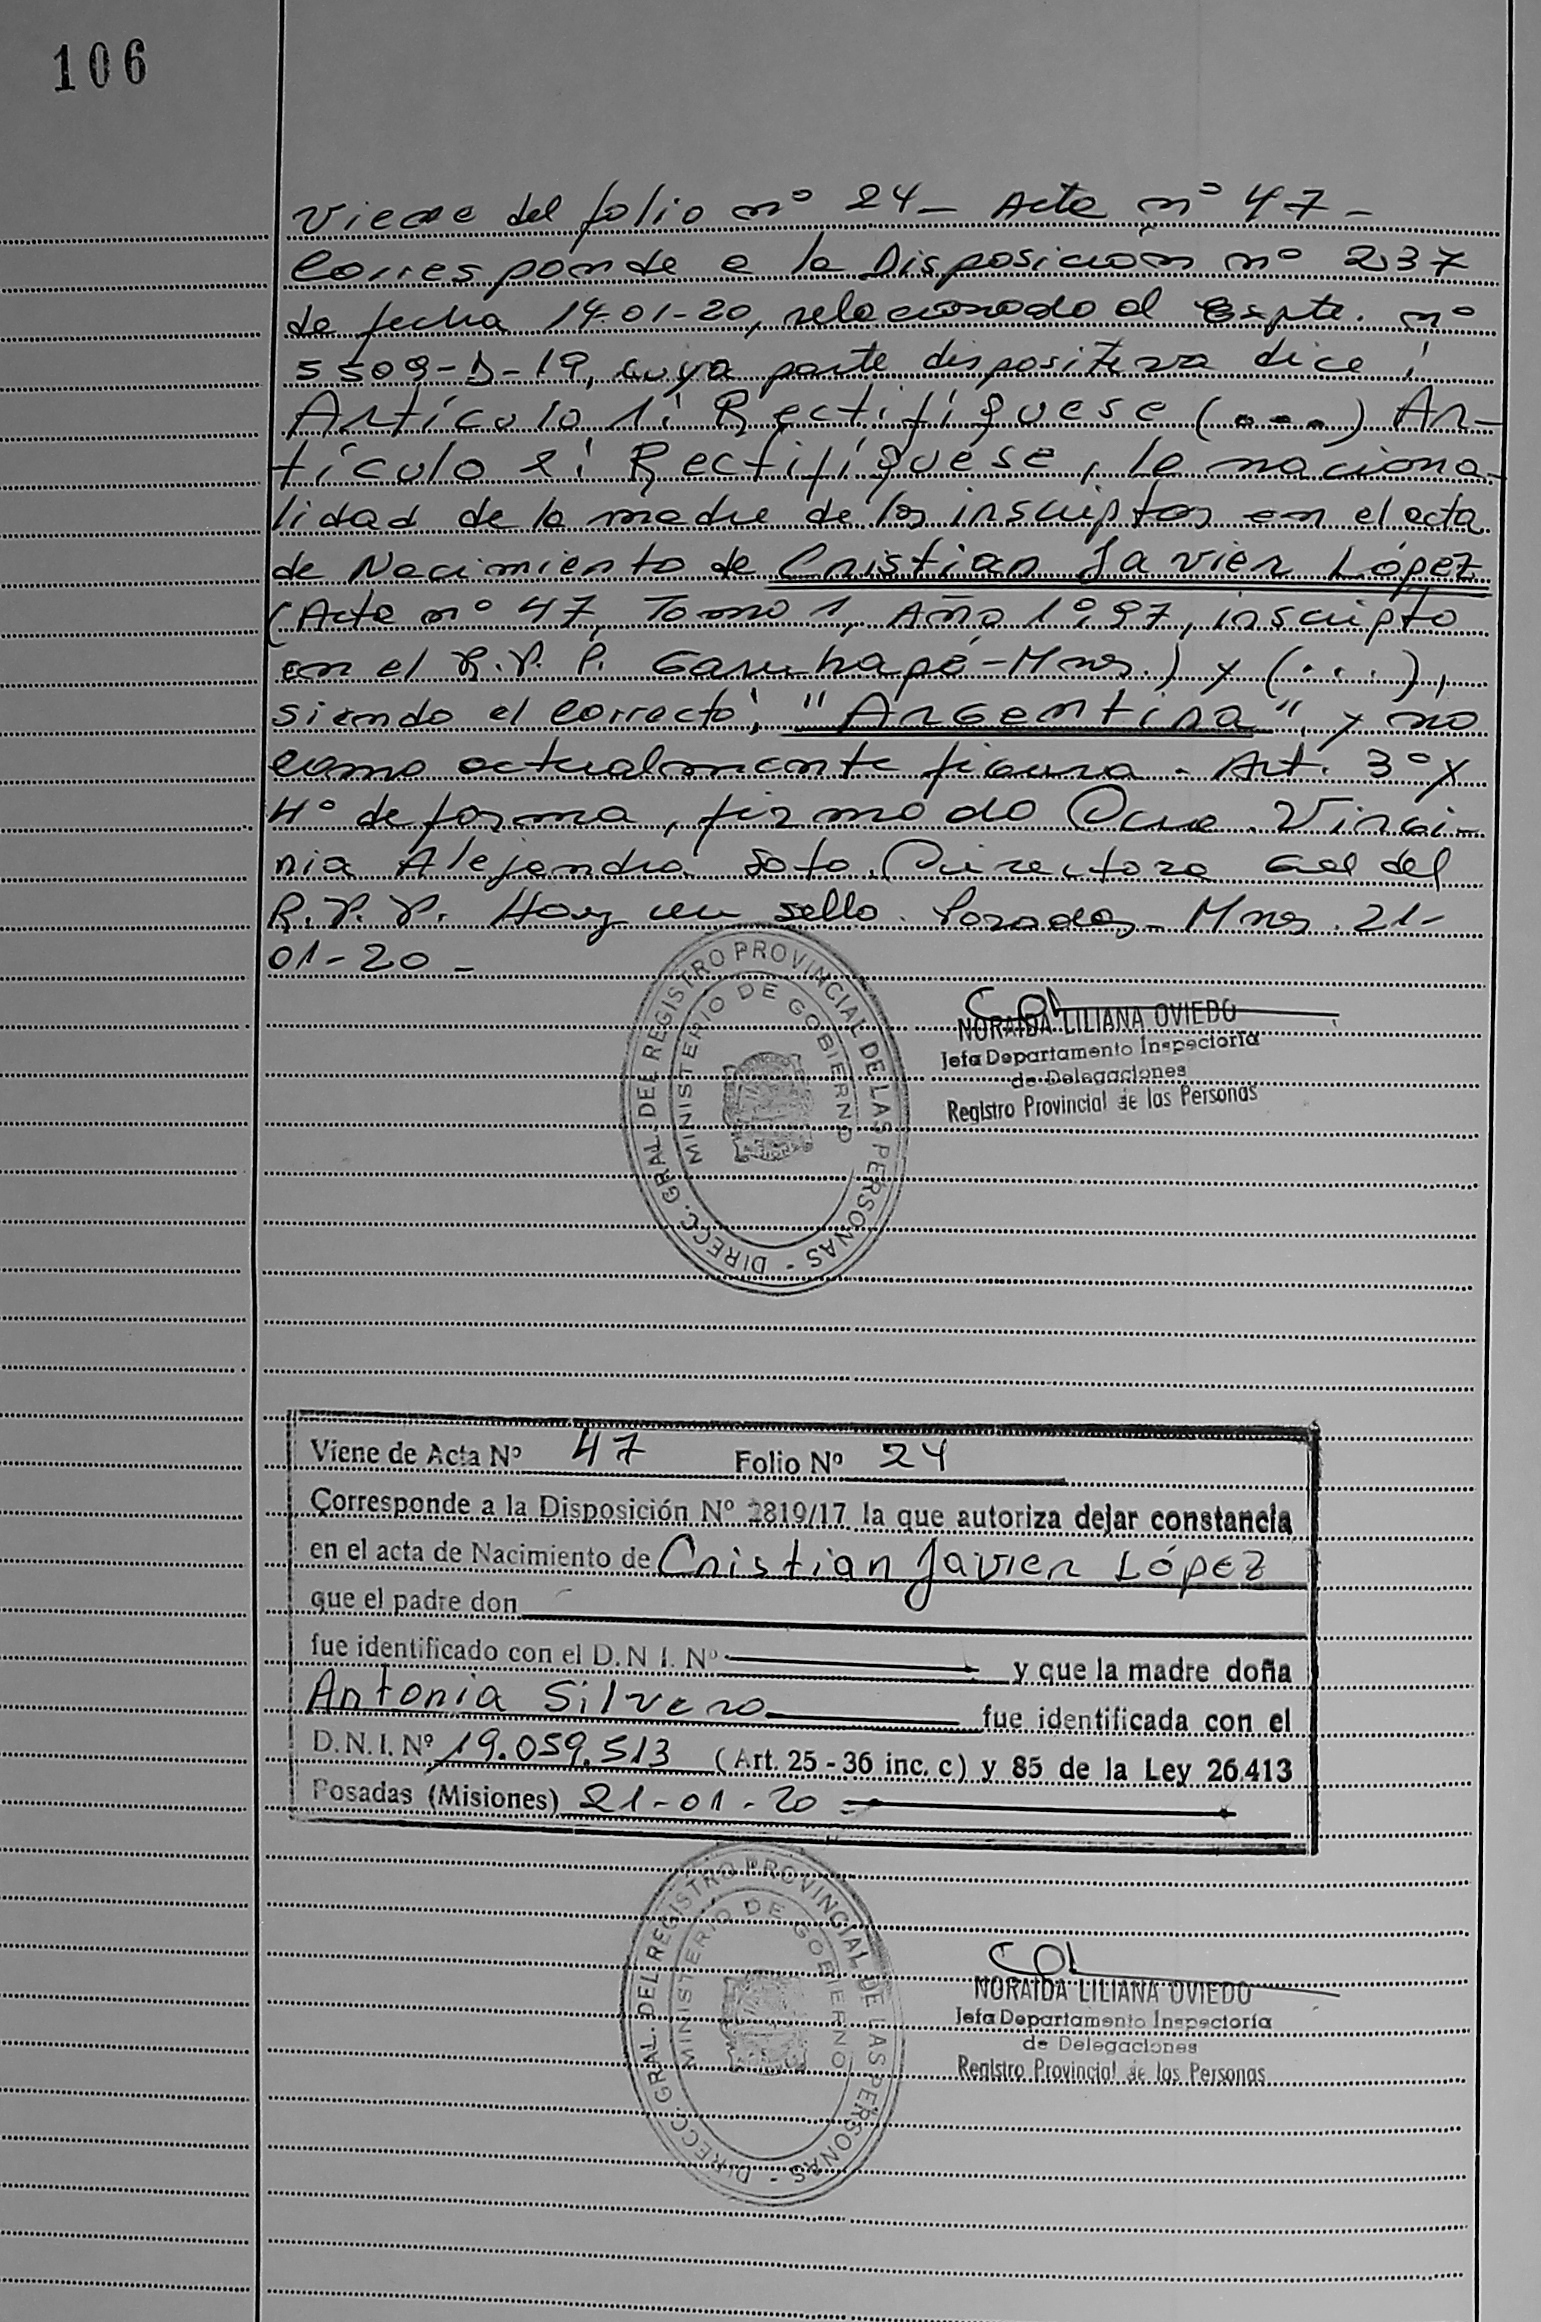 106
Viene del folio nº 24 - Acta nº 47 -
Corresponde a la Disposición nº 237
de fecha 14-01-20, relacionado al Expte. nº
5509-D-19, cuya parte dispositiva dice:
Artículo 1: Rectifíquese (...) Ar-
tículo 2: Rectifíquese, la naciona-
lidad de la madre de los inscriptos en el acta
de Nacimiento de Cristian Javier López
(Acta nº 47, Tomo 1, Año 1997, inscripto
en el R.P.P. Garuhapé-Mnes.) y (...),
siendo el correcto: "Argentina", y no
como actualmente figura. Art. 3º y
4º de forma, firmado Dra. Virgi-
nia Alejandra Soto. Directora Gral del
R.P.P. Hay un sello. Posadas - Mnes. 21-
01-20 -
DIRECC. GRAL. DEL REGISTRO PROVINCIAL DE LAS PERSONAS -
MINISTERIO DE GOBIERNO
NORAIDA LILIANA OVIEDO
Jefa Departamento Inspectoría
de Delegaciones
Registro Provincial de las Personas
Viene de Acta Nº 47 Folio Nº 24
Corresponde a la Disposición Nº 2819/17 la que autoriza dejar constancia
en el acta de Nacimiento de Cristian Javier López
que el padre don
fue identificado con el D.N I. Nº y que la madre doña
Antonia Silvero fue identificada con el
D.N.I. Nº 19.059.513 (Art. 25 - 36 inc. c) y 85 de la Ley 26.413
Posadas (Misiones) 21-01-20
DIRECC. GRAL. DEL REGISTRO PROVINCIAL DE LAS PERSONAS -
MINISTERIO DE GOBIERNO
NORAIDA LILIANA OVIEDO
Jefa Departamento Inspectoría
de Delegaciones
Registro Provincial de las Personas